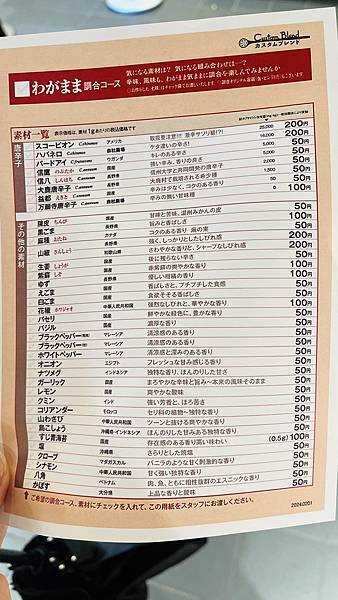 Custom Blend
カスタムブレンド
わがまま 調合コース
気になる素材は？ 気になる組み合わせは…？
辛味、風味も、わがまま気ままに調合を楽しんでみませんか
素材一覧 表示価格は、素材1gあたりの税込価格です
唐辛子
スコーピオン C.chinense アメリカ 取扱要注意!!! 激辛サソリ級(?!) 25,000 200円
ハバネロ C.chinense 自社農場 ケタ違いの辛さ! 16,000 200円
バードアイ C.frutescens ウガンダ キレのある辛さ 5,000 50円
信鷹 のぶたか C.annuum 国産 強い辛み、香りの良さ 5,000 50円
信八 しんはち C.annuum 長野県 信州大学と共同開発の唐辛子 2,000 50円
大鹿唐辛子 C.annuum 長野県 大鹿村で栽培される希少種 1,500 50円
益都 えきと C.annuum 国産 辛みは少なく、コクのある香り 50円
万願寺唐辛子 C.annuum 自社農場 辛みの無い甘味種 0 100円
その他の素材
陳皮 ちんぴ 国産 甘味と苦味、温州みかんの皮 50円
黒ごま 長野県 旨みと香ばしさ 100円
麻種 おたね カナダ コクのある香り 麻の実 50円
山椒 さんしょう 長野県 強く、しっかりとしたしびれ感 200円
和歌山県 さわやかな香りと、シャープなしびれ感 200円
生姜 しょうが 国産 後に残らない辛さ 50円
紫蘇 しそ 長野県 赤紫蘇の爽やかな香り 100円
ゆず 長野県 優しい柑橘の香り 100円
えごま 国産 香ばしさと、プチプチした食感 50円
白ごま 国産 食欲そそる香ばしさ 50円
花椒 ホワジャオ 中華人民共和国 強烈なしびれと、華やかな香り 100円
パセリ 国産 鮮やかな緑色に、豊かな香り 50円
バジル 国産 濃厚な香り 50円
ブラックペッパー マレーシア 清涼感のある香り 50円
ブラックペッパー マレーシア 清涼感のある香り 50円
ホワイトペッパー マレーシア 清涼感と深みのある香り 50円
オニオン エジプト フレッシュな甘み感じる香り 50円
ナツメグ インドネシア 独特な香り、ほんのりした甘さ 50円
ガーリック 国産 まろやかな辛味と旨み〜本来の風味そのまま 50円
レモン 国産 爽やかな酸味 50円
クミン インド 強い芳香と、ほろ苦さ 50円
コリアンダー モロッコ セリ科の植物〜独特な香り 50円
山わさび 中華人民共和国 ツーンと抜ける爽やかな香り 50円
島こしょう 沖縄県・インドネシア ほんのりした甘みある独特な香り 50円
すじ青海苔 国産 存在感のある香り高い味わい (0.5g)100円
塩 沖縄県 さらりとした焼塩 50円
クローブ マダガスカル バニラのような甘く刺激的な香り 50円
シナモン 中華人民共和国 甘く強い独特な香り 50円
八角 ベトナム 肉、魚、ともに相性抜群のエスニックな香り 50円
かぼす 大分県 上品な香りと酸味 50円
↑ご希望の調合コース、素材にチェックを入れて、この用紙をスタッフにお渡しください。
2024.0201